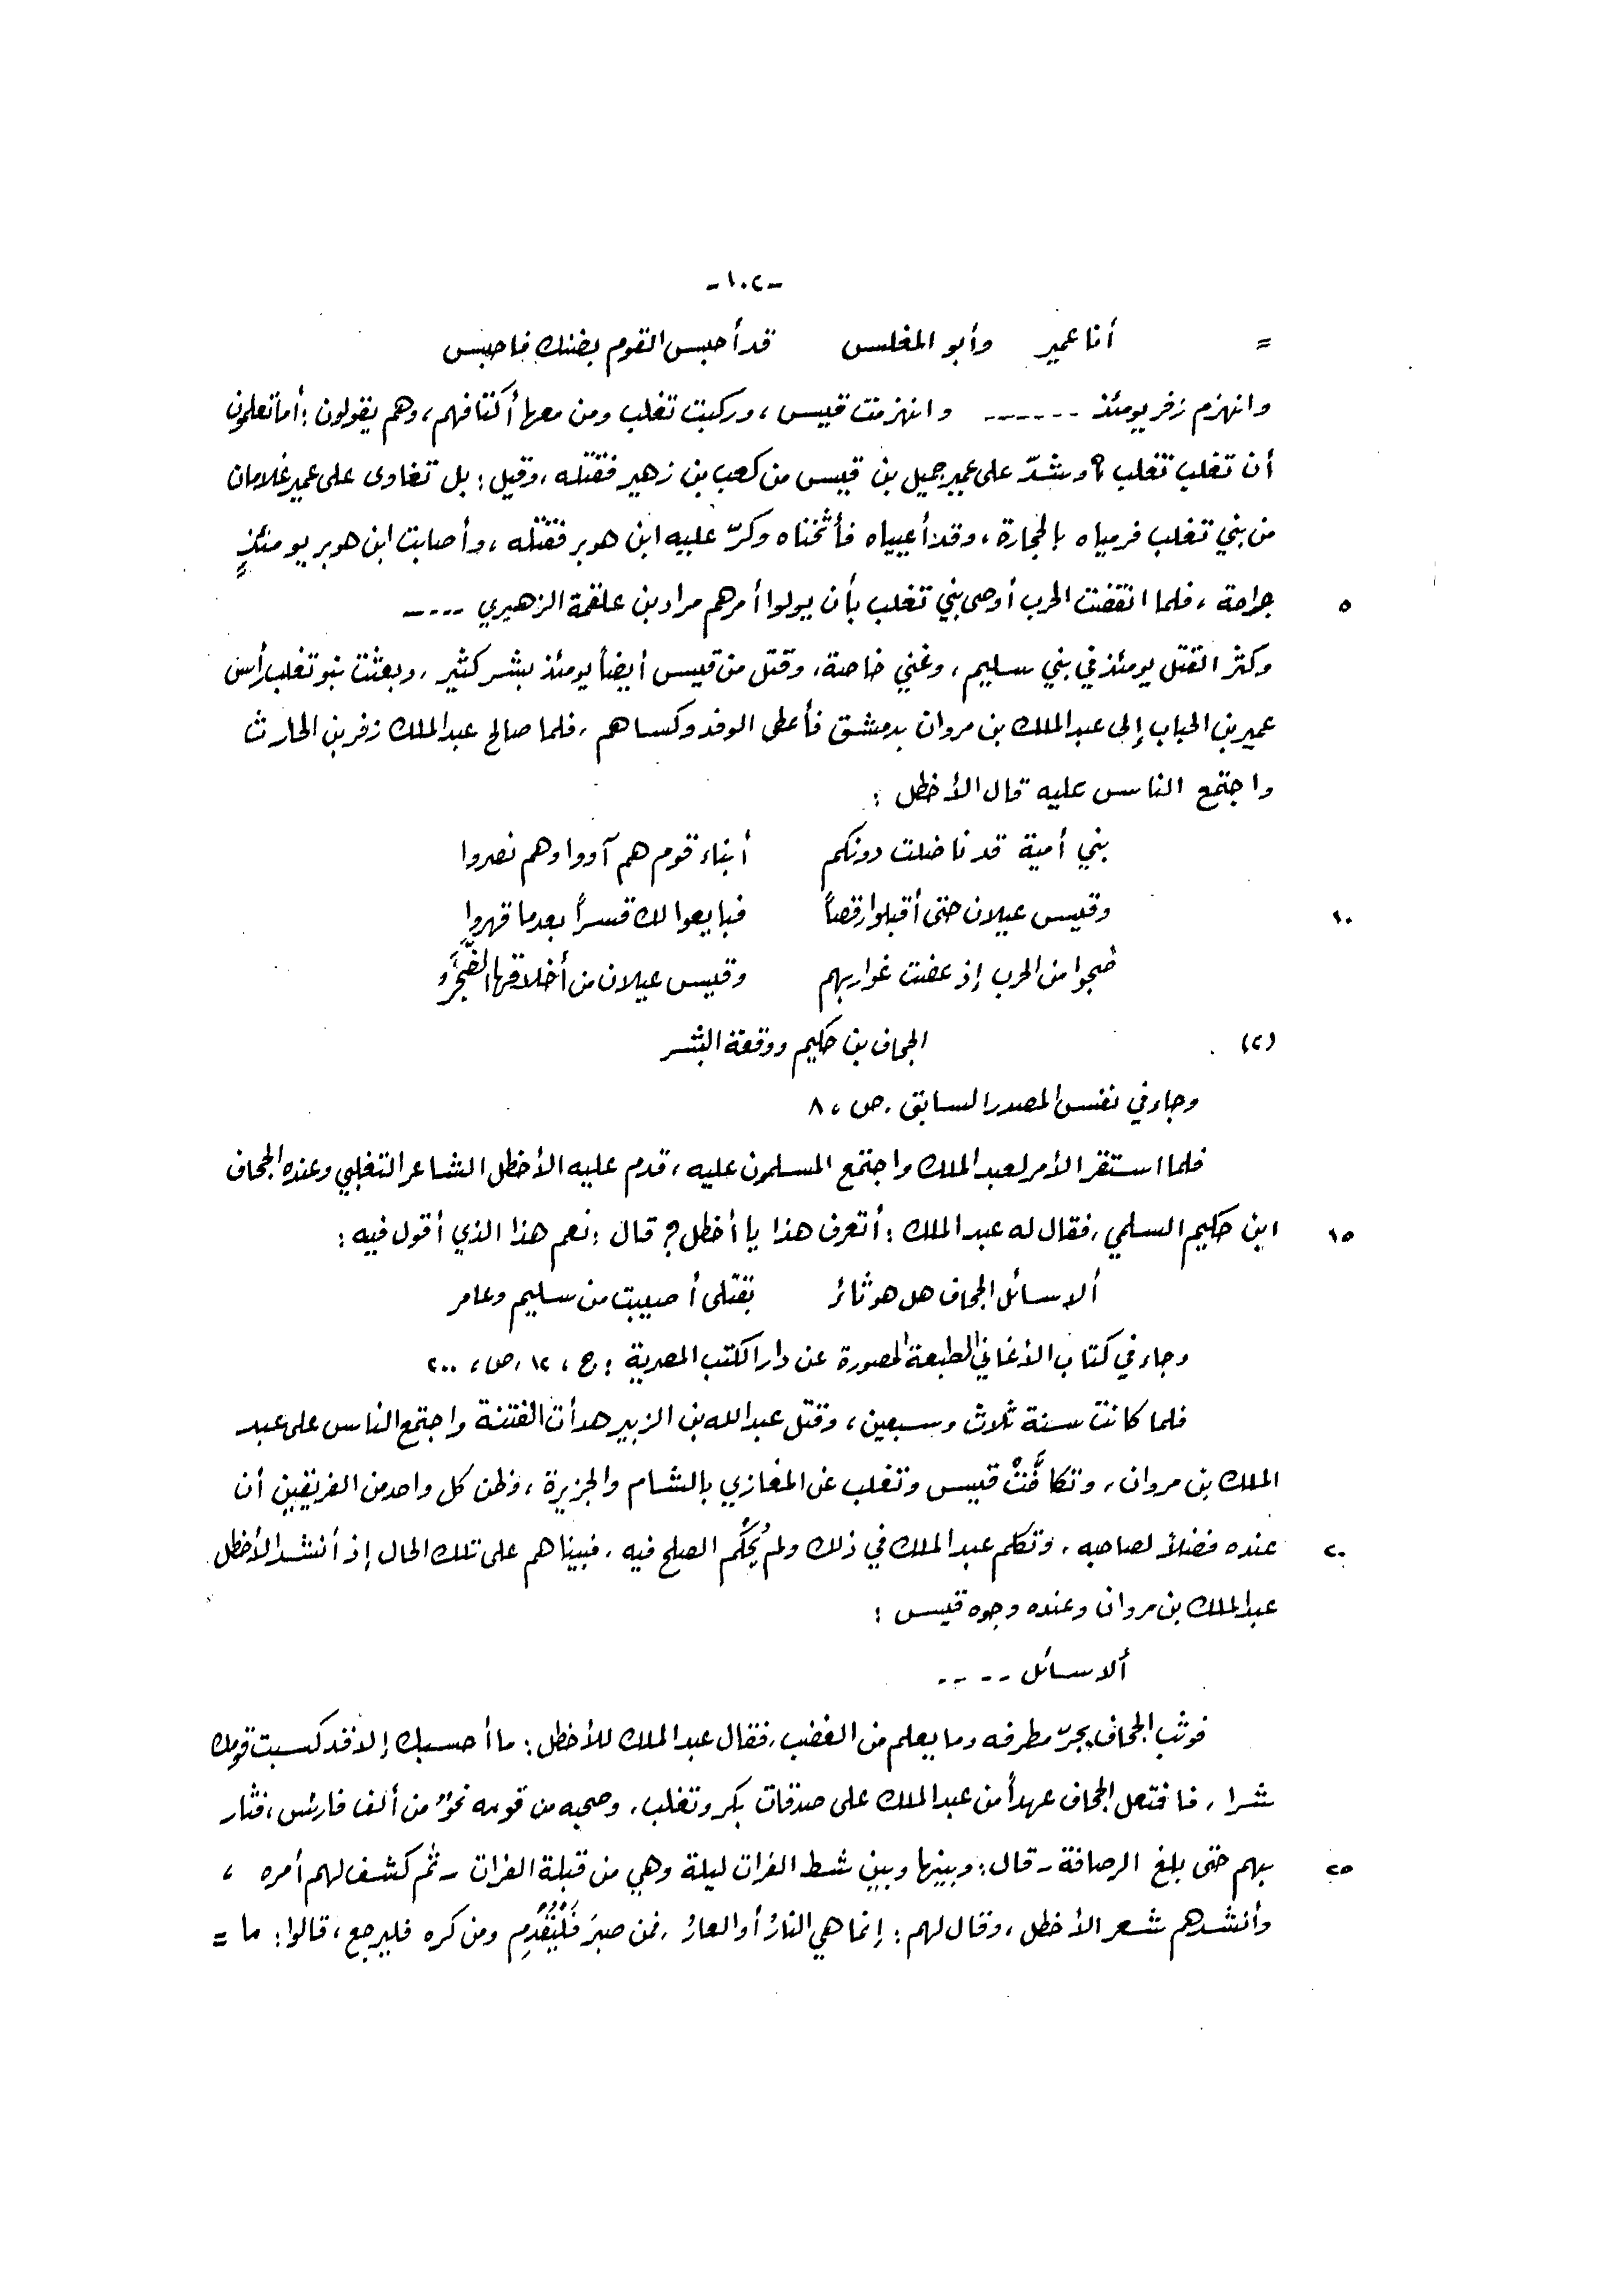 -١٠٢-
= أنا عمير وأبو المغلس قد أحبس القوم بضنك فاحبس
وانهزم زفر يومئذ ------ وانهزمت قيس، وركبت تغلب ومن معها أكتافهم، وهم يقولون: أما تعلمون
أن تغلب تغلب؟ وشدّ على عمير جميل بن قيس من كعب بن زهير فقتله، وقيل: بل تغاوى على عمير غلامان
من بني تغلب فرمياه بالحجارة، وقد أعيياه فأثخناه وكرّ عليه ابن هوبر فقتله، وأصابت ابن هوبر يومئذٍ
٥ جراحة، فلما انقضت الحرب أوصى بني تغلب بأن يولوا أمرهم مراد بن علقمة الزهيري ----
وكثر القتل يومئذ في بني سليم، وغني خاصة، وقتل من قيس أيضاً يومئذ بشر كثير، وبعثت بنو تغلب رأس
عمير بن الحباب إلى عبد الملك بن مروان بدمشق فأعطى الوفد وكساهم، فلما صالح عبد الملك زفر بن الحارث
واجتمع الناس عليه قال الأخطل:
بني أمية قد ناضلت دونكم أبناء قوم هم آووا وهم نصروا
١٠ وقيس عيلان حتى أقبلوا رقصاً فبايعوا لك قسراً بعدما قهروا
ضجوا من الحرب إذ عضت غواربهم وقيس عيلان من أخلاقها الضَّجَرُ
(٢) الجحاف بن حكيم ووقعة البشر
وجاء في نفس المصدر السابق، ص، ٨
فلما استقر الأمر لعبد الملك واجتمع المسلمون عليه، قدم عليه الأخطل الشاعر التغلبي وعنده الجحاف
١٥ ابن حكيم السلمي، فقال له عبد الملك: أتعرف هذا يا أخطل؟ قال: نعم هذا الذي أقول فيه:
ألا سائل الجحاف هل هو ثائر بقتلى أصيبت من سليم وعامر
وجاء في كتاب الأغاني الطبعة المصورة عن دار الكتب المصرية: ج، ١٢، ص، ٢٠٠
فلما كانت سنة ثلاث وسبعين، وقتل عبد الله بن الزبير هدأت الفتنة واجتمع الناس على عبد
الملك بن مروان، وتكافَّتْ قيس وتغلب عن المغازي بالشام والجزيرة، وظن كل واحد من الفريقين أن
٢٠ عنده فضلاً لصاحبه، وتكلم عبد الملك في ذلك ولم يُحكَم الصلح فيه، فبيناهم على تلك الحال إذ أنشد الأخطل
عبد الملك بن مروان وعنده وجوه قيس:
ألا سائل ----
فوثب الجحاف يجرّ مطرفه وما يعلم من الغضب، فقال عبد الملك للأخطل: ما أحسبك إلا قد كسبت قومك
شرا، فافتعل الجحاف عهداً من عبد الملك على صدقات بكر وتغلب، وصحبه من قومه نحوٌ من ألف فارس، فثار
٢٥ بهم حتى بلغ الرصافة - قال: وبينها وبين شط الفرات ليلة وهي من قبلة الفرات - ثم كشف لهم أمره،
وأنشدهم شعر الأخطل، وقال لهم: إنما هي النارُ أو العارُ، فمن صبرَ فَلْيَتَقَدم ومن كره فليرجع، قالوا: ما =